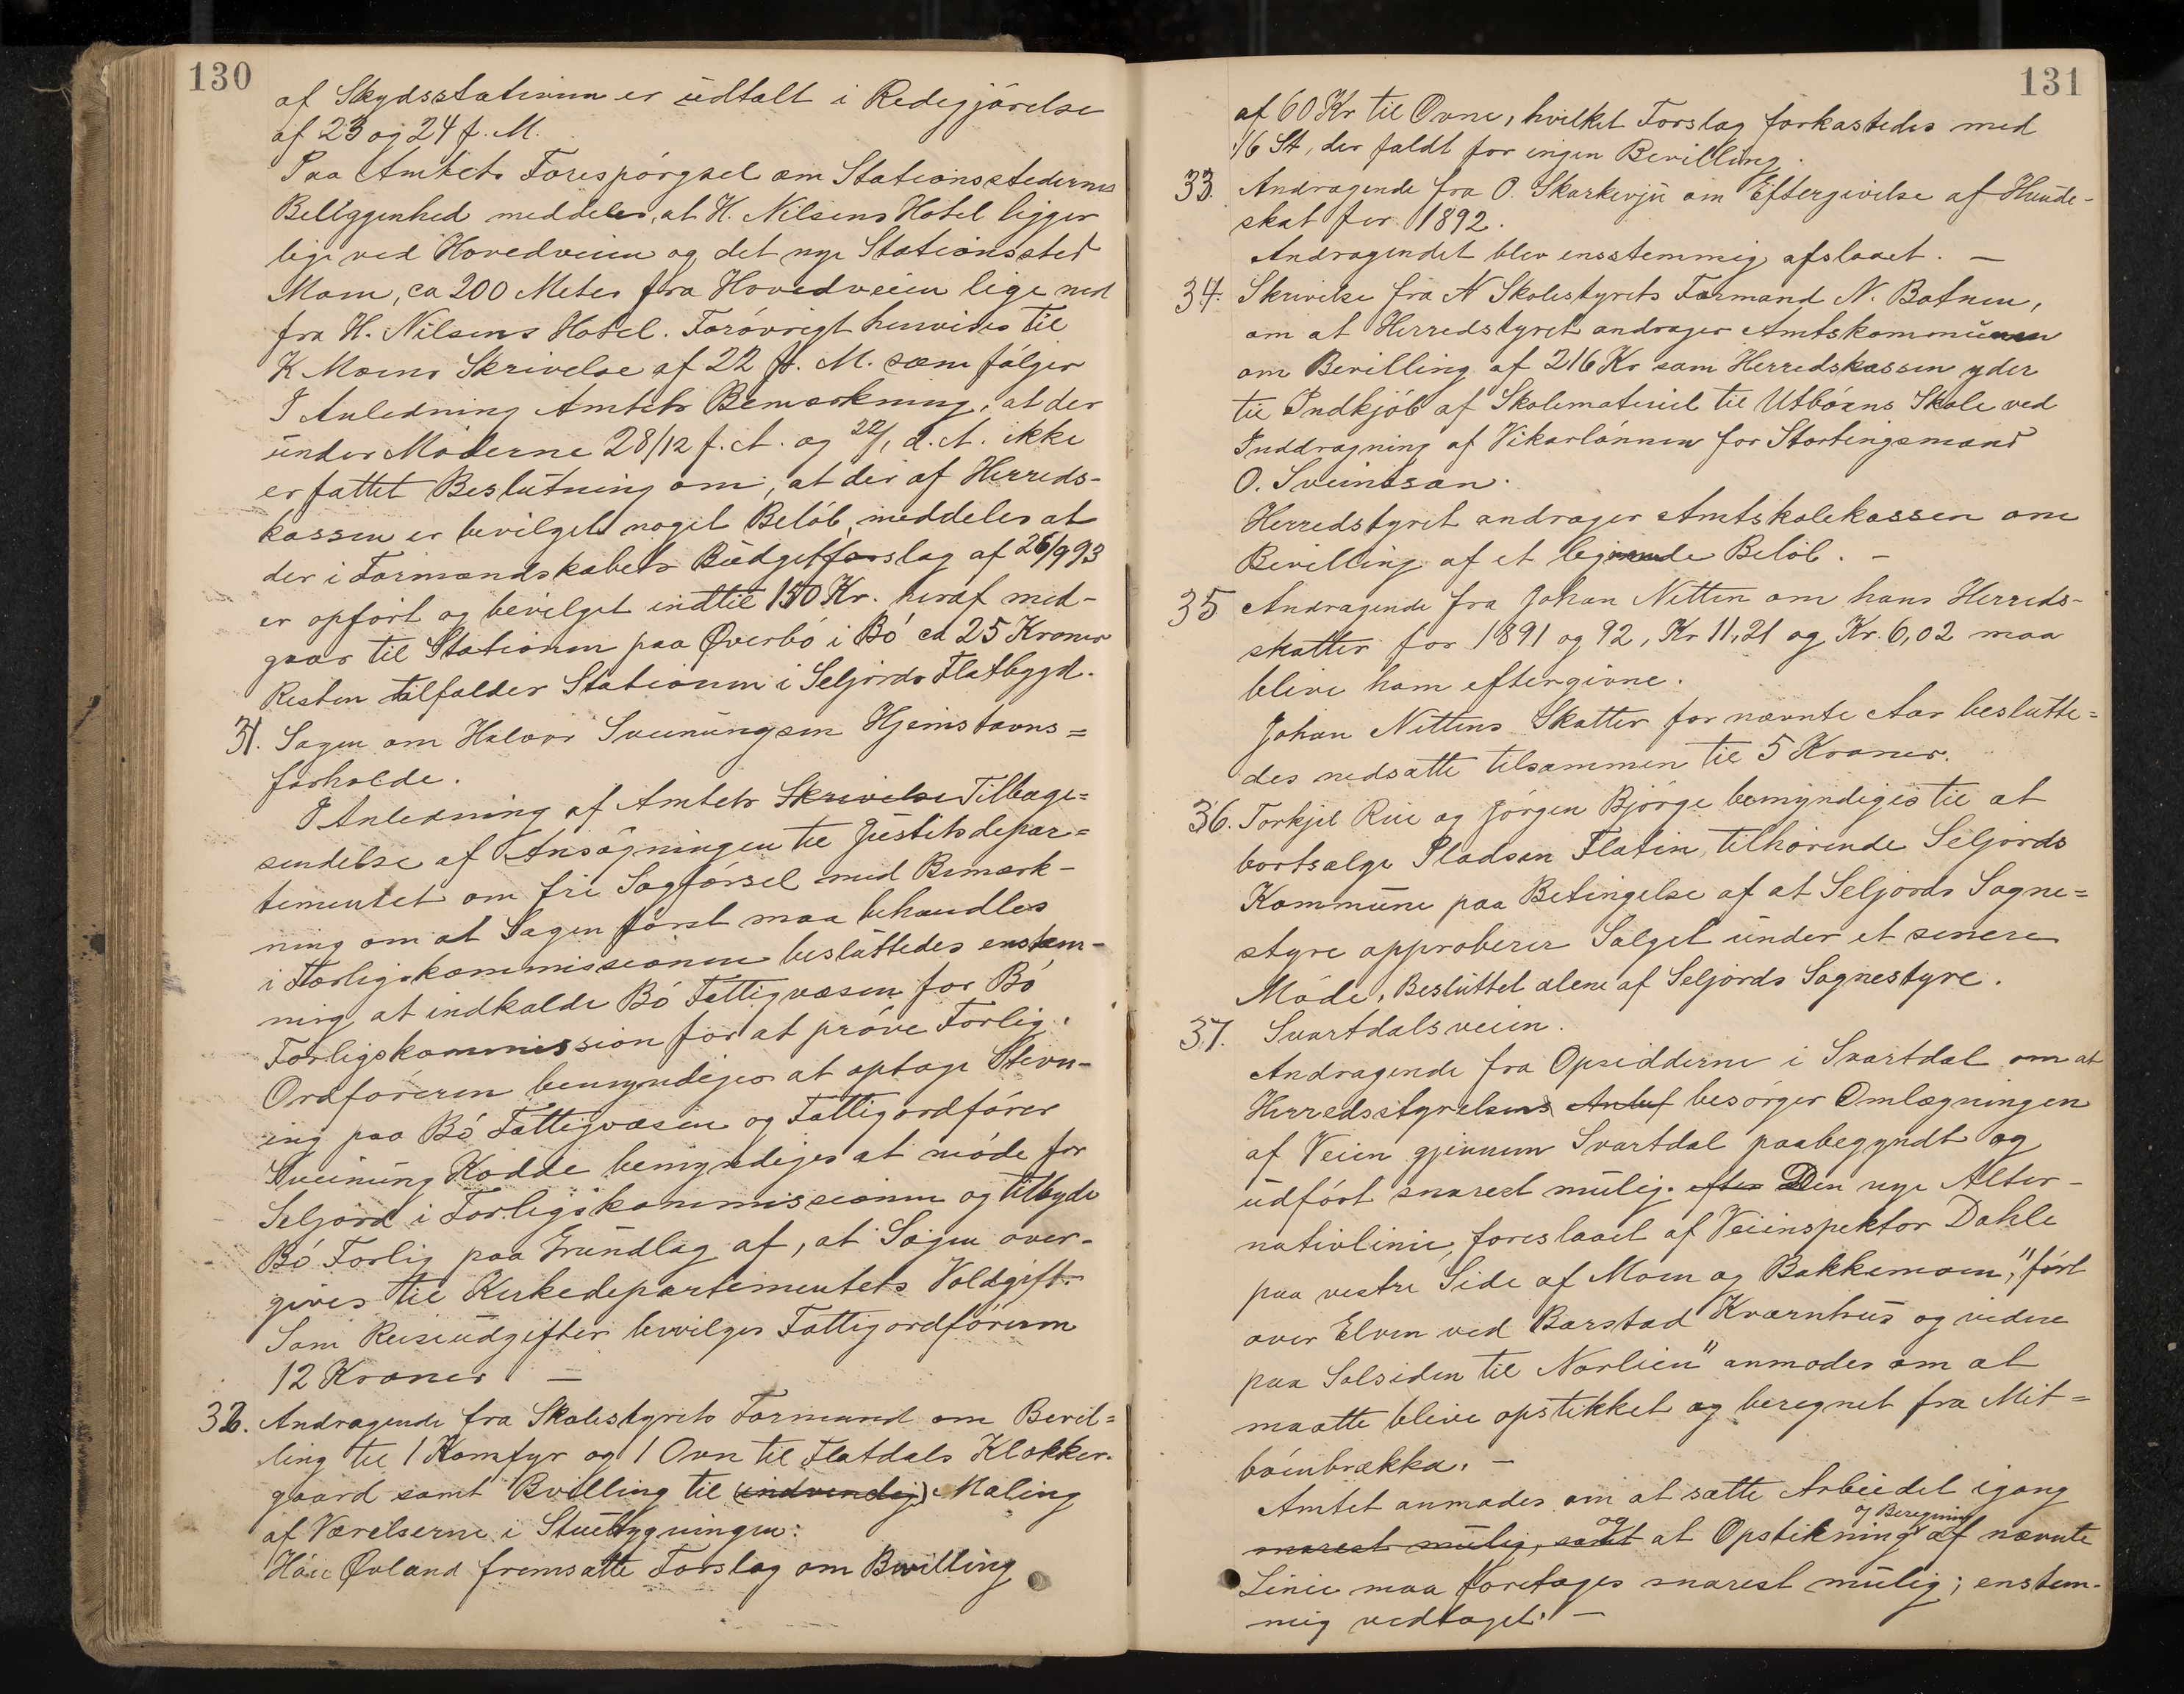 130
af Skydsstationen er udtalt i Redegjörelse
af 23 og 24 f. M.
Paa Amtets Forespörgsel om Stationsstedernes
Beliggenhed meddeles, at H. Nilsens Hotel ligger
lige ved Hovedveien og det nye Stationssted
Moen, ca 200 Meter fra Hovedveien lige ned
fra H. Nilsens Hotel. Foróvrigt henvises til
K. Moens Skrivelse af 22 f. M. som fólger
I Anledning Amtets Bemærkning, at der
under Móderne 28/12 f. A. og 22/1 d. A. ikke
er fattet Beslutning om, at der af Herreds-
kassen er bevilget noget Belób, meddeles at
der i Formandskabets Budgetforslag af 26/9 93
er opfórt og bevilget indtil 150 Kr. heraf med-
gaar til Stationen paa Øverbó i Bó ca 25 Kroner
Resten tilfalder Stationen i Seljords Flatbygd.
31. Sagen om Halvor Sveinungsen Hjemstavns=
forholde.
I Anledning af Amtets Skrivelse Tilbage=
sendelse af Ansógningen til Justitsdepar=
tementet om fri Sagfórsel med Bemærk-
ning om at Sagen fórst maa behandles
i Forligskommissionen besluttedes enstem-
mig at indkalde Bó Fattigvæsen for Bó
Forligskommission for at próve Forlig.
Ordfóreren bemyndiges at optage Stevn-
ing paa Bó Fattigvæsen og Fattigordfórer
Sveinung Kodde bemyndiges at móde for
Seljord i Forligskommissionen og tilbyde
Bó Forlig paa Grundlag af, at Sagen over-
gives til Kirkedepartementets Voldgift.
Som Reiseudgifter bevilges Fattigordfóreren
12 Kroner —
32. Andragende fra Skolestyrets Formand om Bevil=
ling til 1 Komfyr og 1 Ovn til Flatdals Klokker-
gaard samt Bevilling til (indvendig) Maling
af Værelserne i Stuebygningen:
Øvland fremsatte Forslag om Bevilling
131
af 60 Kr til Ovne, hvilket Forslag forkastedes med
16 St, der faldt for ingen Bevilling.
33. Andragende fra O. Skarkevju om Eftergivelse af Hunde-
skat for 1892.
Andragendet blev ensstemmig afslaaet. —
34. Skrivelse fra N Skolestyrets Formand N. Botnen,
om at Herredstyret andrager Amtskommunen
om Bevilling af 216 Kr som Herredskassen yder
til Indkjób af Skolemateriel til Utbóens Skole ved
Inddragning af Vikarlónnen for Stortingsmand
O. Sveintsen.
Herredstyret andrager Amtskolekassen om
Bevilling af et lignende Belób. —
35 Andragende fra Johan Nitten om hans Herreds-
skatter for 1891 og 92, Kr 11,21 og Kr. 6,02 maa
blive ham eftergivne.
Johan Nittens Skatter for nævnte Aar beslutte=
des nedsatte tilsammen til 5 Kroner.
36. Torkjel Rue og Jórgen Bjórge bemyndiges til at
bortsælge Pladsen Flatin, tilhórende Seljords
Kommune paa Betingelse af at Seljords Sogne=
styre approberer Salget under et senere
Móde. Besluttet alene af Seljords Sognestyre.
37. Svartdalsveien.
Andragende fra Opsidderne i Svartdal om at
Herredsstyrelsen besórger Omlægningen
af Veien gjennem Svartdal paabegyndt og
udfórt snarest mulig. efter Den nye Alter-
nativlinie, foreslaaet af Veiinspektor Dahle
paa vestre Side af Moen og Bakkemoen, "fórt
over Elven ved Barstad Kværnhus og videre
paa Solsiden til Norlien" anmodes om at
maatte blive opstikket og beregnet fra Mit=
bóenbrækka. —
Amtet anmodes om at sætte Arbeidet igang
snarest mulig, samt og at Opstikning og Beregning af nævnte
Linie maa foretages snarest mulig; enstem-
mig vedtaget. —